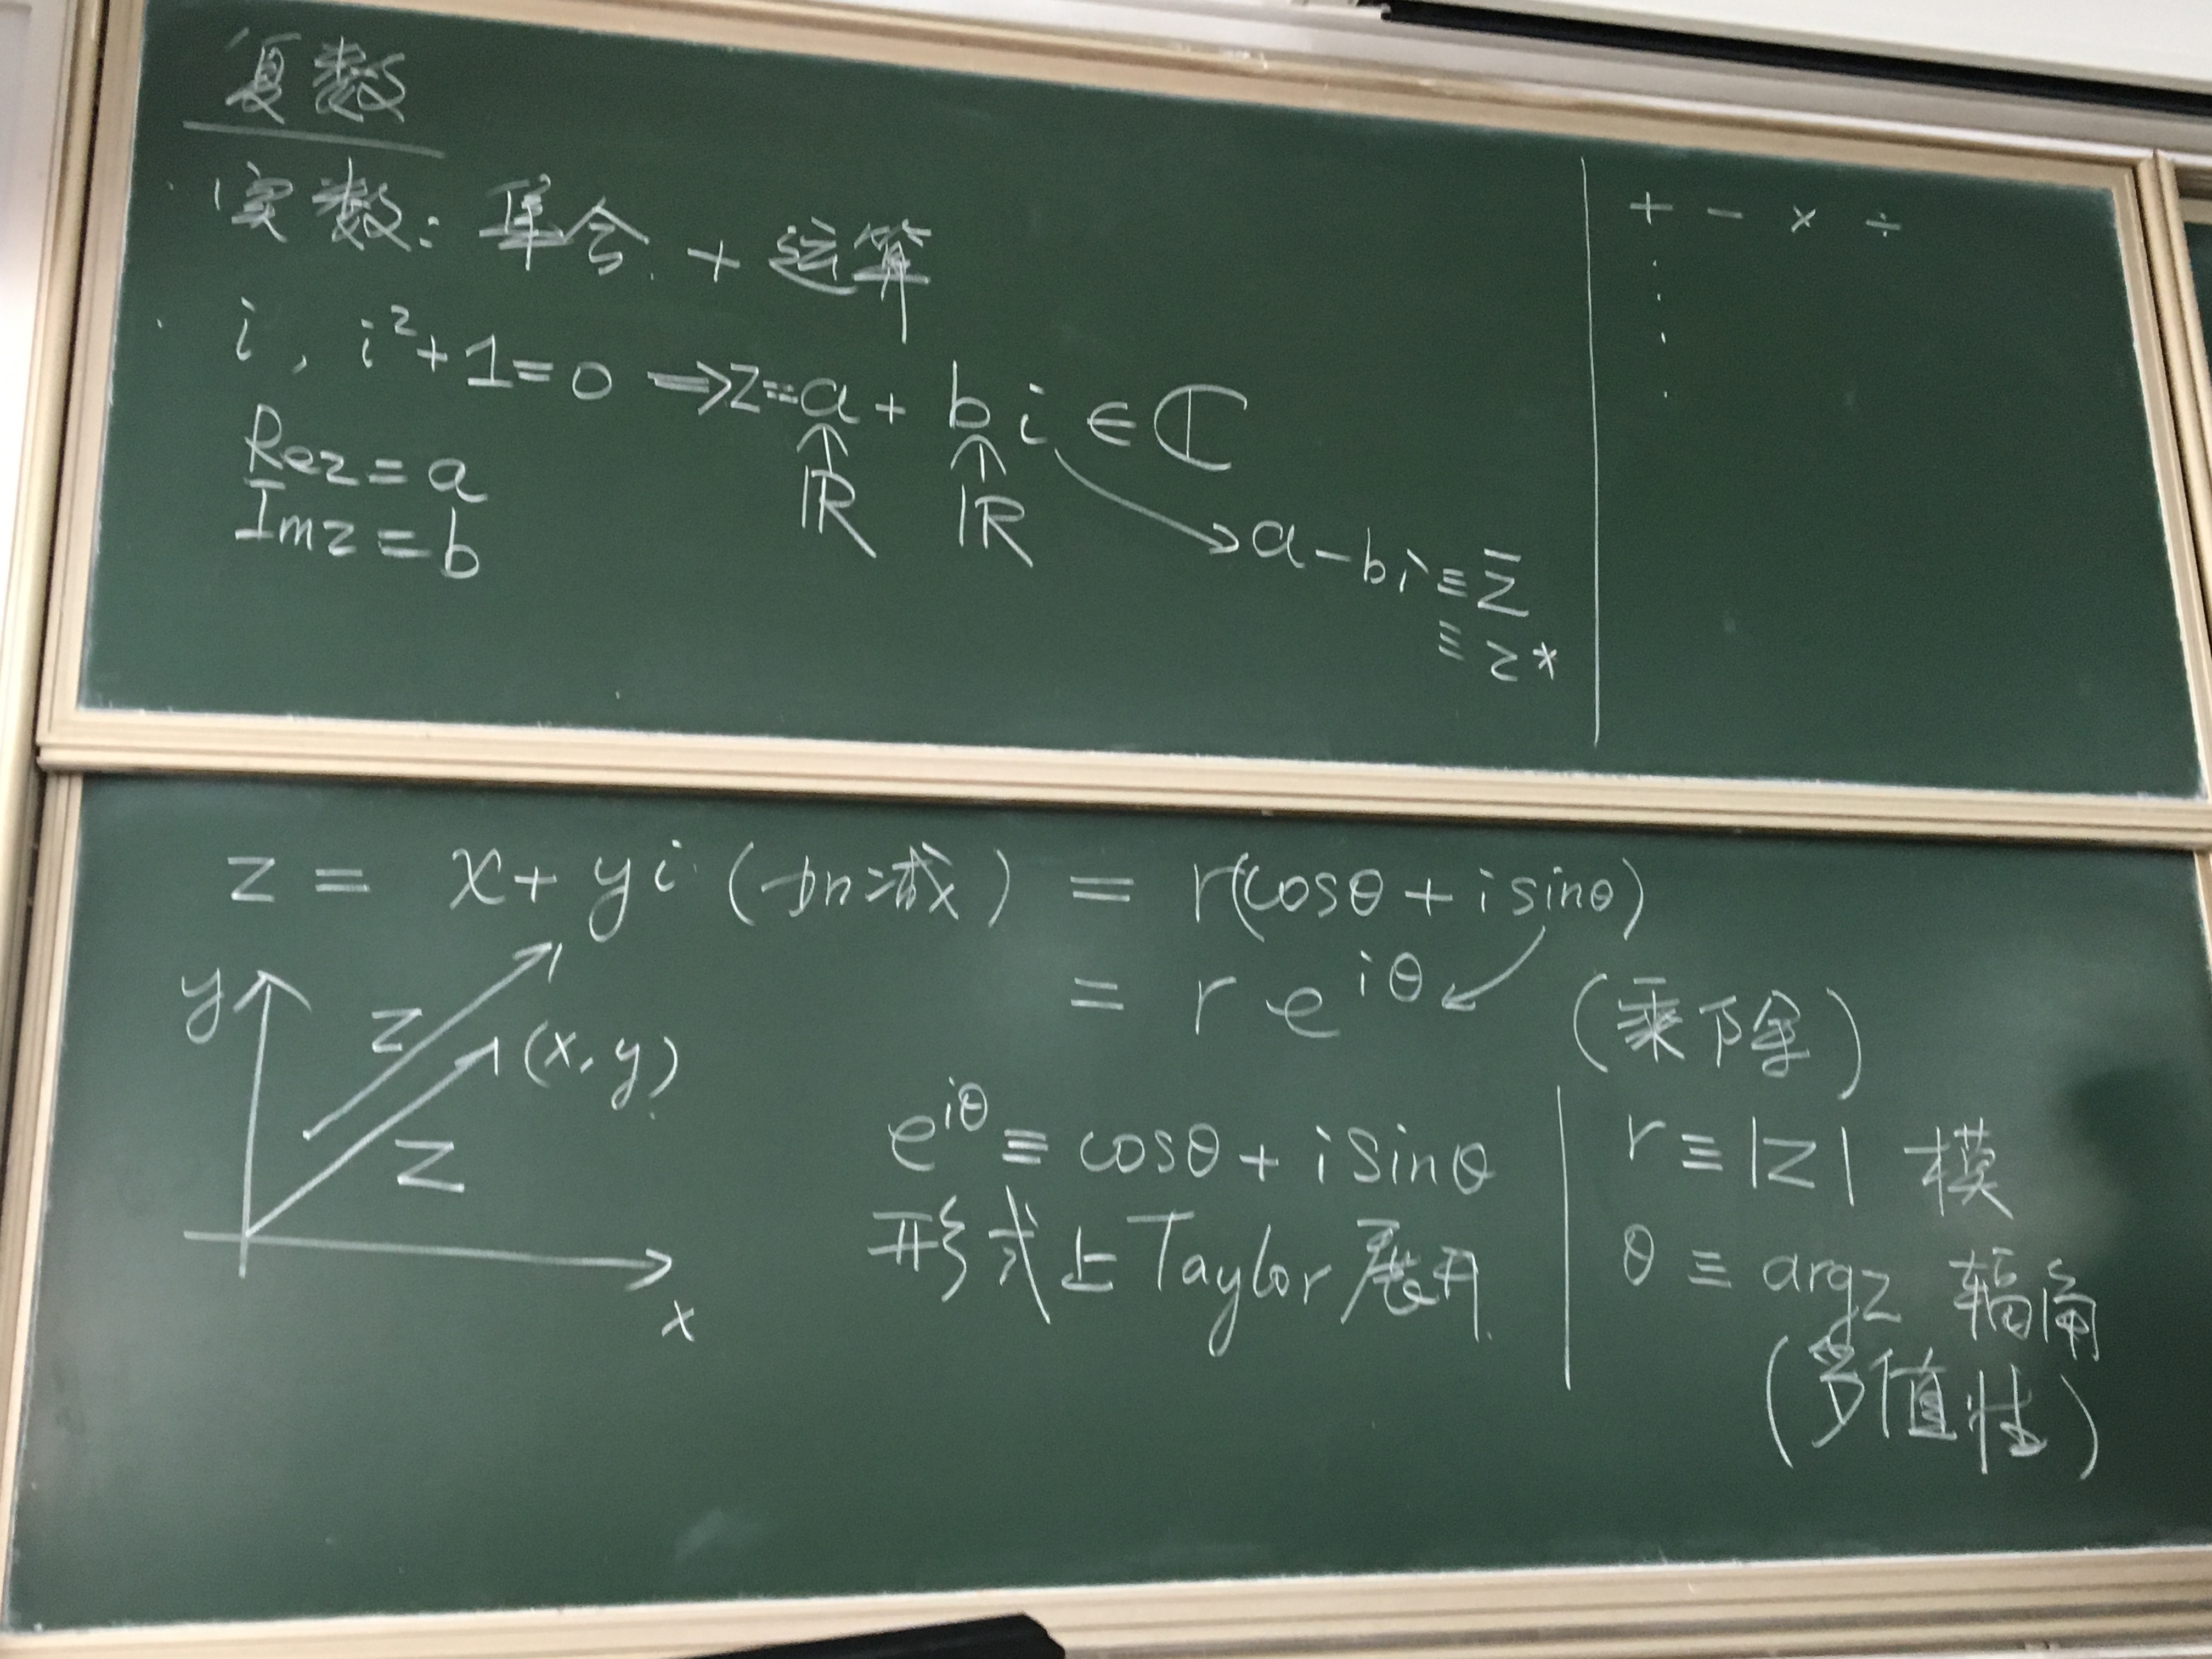 复数
实数: 集合 + 运算
i, i²+1=0 ⟹ z=a+bi ∈ ℂ
ℝ ℝ
Rez=a
Imz=b
a-bi≡z̄
≡z*
+ - × ÷
z = x+yi (加减) = r(cosθ+isinθ)
= re^{iθ} (乘除)
y
z
(x,y)
z
x
e^{iθ}≡cosθ+isinθ
形式上Taylor展开
r≡|z| 模
θ≡argz 辐角
(多值性)